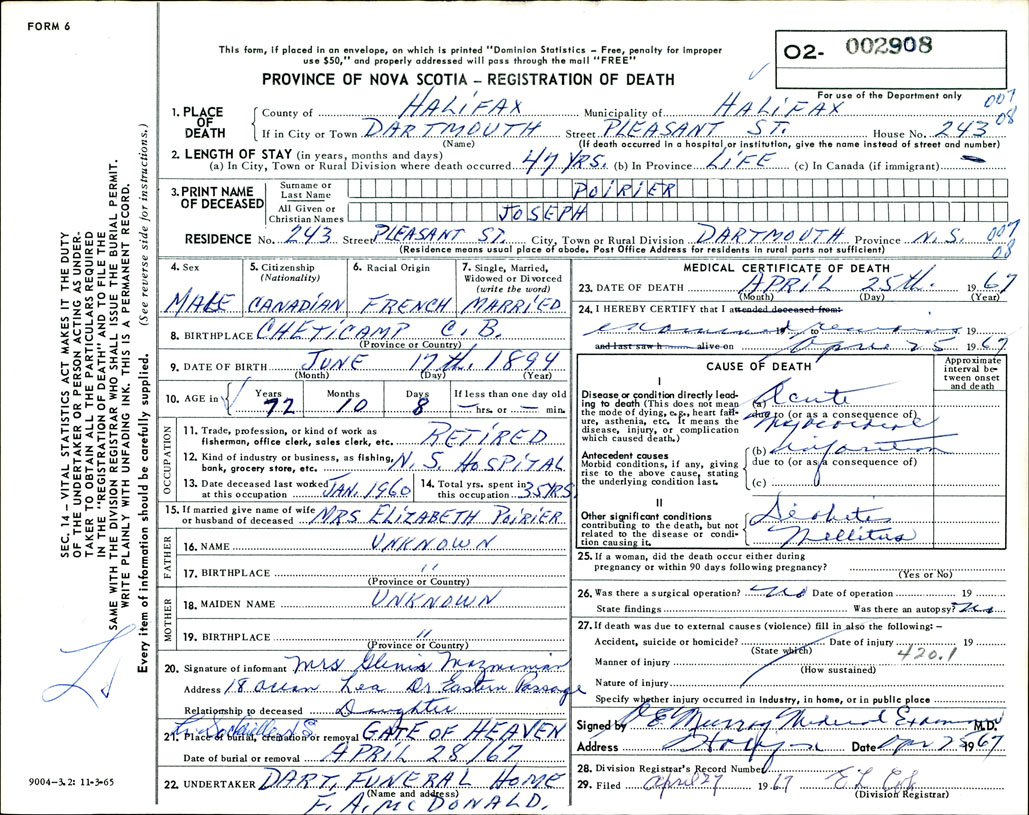 FORM 6
This form, if placed in an envelope, on which is printed "Dominion Statistics – Free, penalty for improper
use $50," and properly addressed will pass through the mail "FREE"
PROVINCE OF NOVA SCOTIA – REGISTRATION OF DEATH
O2- 002908
For use of the Department only
007
08
1. PLACE OF DEATH
County of HALIFAX Municipality of HALIFAX
If in City or Town DARTMOUTH Street PLEASANT ST. House No. 243
(Name) (If death occurred in a hospital or institution, give the name instead of street and number)
2. LENGTH OF STAY (in years, months and days)
(a) In City, Town or Rural Division where death occurred 47 YRS. (b) In Province LIFE (c) In Canada (if immigrant) –
3. PRINT NAME OF DECEASED
Surname or Last Name POIRIER
All Given or Christian Names JOSEPH
RESIDENCE No. 243 Street PLEASANT ST. City, Town or Rural Division DARTMOUTH Province N.S. 007
08
(Residence means usual place of abode. Post Office Address for residents in rural parts not sufficient)
4. Sex
MALE
5. Citizenship
(Nationality)
CANADIAN
6. Racial Origin
FRENCH
7. Single, Married,
Widowed or Divorced
(write the word)
MARRIED
8. BIRTHPLACE CHETICAMP C.B.
(Province or Country)
9. DATE OF BIRTH JUNE 17th. 1894
(Month) (Day) (Year)
10. AGE in
Years Months Days If less than one day old
72 10 8 — hrs. or — min.
OCCUPATION
11. Trade, profession, or kind of work as
fisherman, office clerk, sales clerk, etc. RETIRED
12. Kind of industry or business, as fishing,
bank, grocery store, etc. N.S. HOSPITAL
13. Date deceased last worked
at this occupation JAN. 1960
14. Total yrs. spent in
this occupation 35 YRS
15. If married give name of wife
or husband of deceased MRS ELIZABETH POIRIER
FATHER
16. NAME UNKNOWN
17. BIRTHPLACE "
(Province or Country)
MOTHER
18. MAIDEN NAME UNKNOWN
19. BIRTHPLACE "
(Province or Country)
20. Signature of informant Mrs Glenis
Address 18 Ocean Lea Dr Eastern Passage
Relationship to deceased Daughter
L. Sackville N.S.
21. Place of burial, cremation or removal GATE OF HEAVEN
Date of burial or removal APRIL 28/67
22. UNDERTAKER DART. FUNERAL HOME
(Name and address)
F. A. McDONALD.
MEDICAL CERTIFICATE OF DEATH
23. DATE OF DEATH APRIL 25th. 1967
(Month) (Day) (Year)
24. I HEREBY CERTIFY that I attended deceased from:
examined remains 19 to 19
and last saw h alive on April 25 1967
CAUSE OF DEATH
Approximate
interval be-
tween onset
and death
I
Disease or condition directly lead-
ing to death (This does not mean
the mode of dying, e.g., heart fail-
ure, asthenia, etc. It means the
disease, injury, or complication
which caused death.)
(a) Acute
due to (or as a consequence of)
Myocardial
Antecedent causes
Morbid conditions, if any, giving
rise to the above cause, stating
the underlying condition last.
(b) Infarction
due to (or as a consequence of)
(c)
II
Other significant conditions
contributing to the death, but not
related to the disease or condi-
tion causing it.
Diabetes
Mellitus
25. If a woman, did the death occur either during
pregnancy or within 90 days following pregnancy?
(Yes or No)
26. Was there a surgical operation? No Date of operation 19
State findings Was there an autopsy? No
27. If death was due to external causes (violence) fill in also the following: –
Accident, suicide or homicide? Date of injury 19
(State which)
Manner of injury 420.1
(How sustained)
Nature of injury
Specify whether injury occurred in industry, in home, or in public place
Signed by E. Murray Medical Examiner M.D.
Address Halifax Date Apr 25 1967
28. Division Registrar's Record Number
29. Filed April 27 1967
(Division Registrar)
SEC. 14 – VITAL STATISTICS ACT MAKES IT THE DUTY
OF THE UNDERTAKER OR PERSON ACTING AS UNDER-
TAKER TO OBTAIN ALL THE PARTICULARS REQUIRED
IN THE "REGISTRATION OF DEATH" AND TO FILE THE
SAME WITH THE DIVISION REGISTRAR WHO SHALL ISSUE THE BURIAL PERMIT.
WRITE PLAINLY WITH UNFADING INK. THIS IS A PERMANENT RECORD.
Every item of information should be carefully supplied. (See reverse side for instructions.)
9004-3.2: 11-3-65